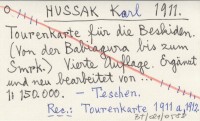 HUSSAK Karl 1911.
Tourenkarte für die Beskiden.
(Von der Babiagura bis zum
Smrk.) Vierte Auflage. Ergänzt
und neu bearbeitet von ...
1:150.000. - Teschen.
Rec.: Tourenkarte 1911 a, 1912.